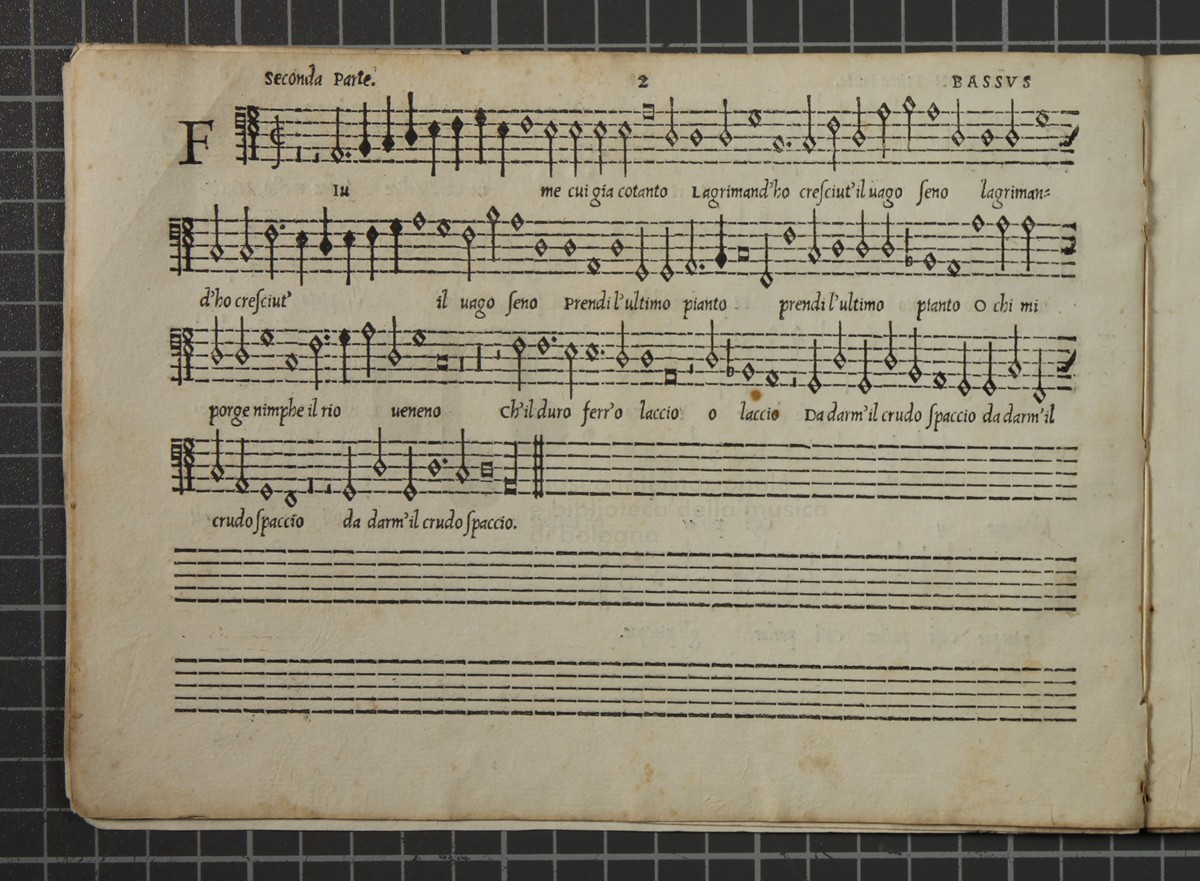 Seconda Parte. 2 BASSVS
F
Iu me cui gia cotanto Lagrimand'ho creſciut'il uago ſeno lagriman=
d'ho creſciut' il uago ſeno Prendi l'ultimo pianto prendi l'ultimo pianto O chi mi
porge nimphe il rio ueneno Ch'il duro ferr'o laccio o laccio Da darm'il crudo ſpaccio da darm'il
crudo ſpaccio da darm'il crudo ſpaccio.
e biblioteca della musica
di bologna